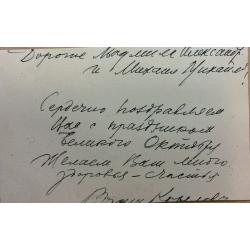 Дорогие Людмила Александр
и Михаил Михайл
Сердечно поздравляем
Вас с праздником
Великого Октября
Желаем Вам много
здоровья - счастья